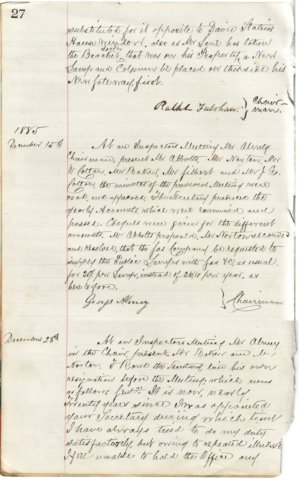 27
substituted for it opposite to
House
the Bracket, that was on his Property, a New
Lamp and Column be placed on this side his
New
Ralph } Chair-
man.
1885
December 15th
At an Inspectors Meeting Mr Almey
Chairman, present Mr Abbotts, Mr Norton, Mr
and Mr J. Geo.
the minutes of the previous Meeting were
read, and approved. The Secretary produced the
yearly Accounts which were examined and
passed. Cheques were given for the different
amounts. Mr Abbotts proposed, Mr Norton seconded
and resolved, that the Gas Company be requested to
supply the Public Lamps with Gas &c, as usual
for 20/- per Lamp, instead of per year, as
heretofore.
George Almey } Chairman
December 28th
At an Inspectors Meeting Mr Almey
in the Chair, present Mr and Mr
Norton. I Read the Minutes, and his own
resignation before the Meeting, which runs
as follows, It is now, nearly
twenty years since I was appointed
your Secretary during which time
I have always tried to do my duty
satisfactorily but owing to repeated illness
I feel unable to hold the Office any